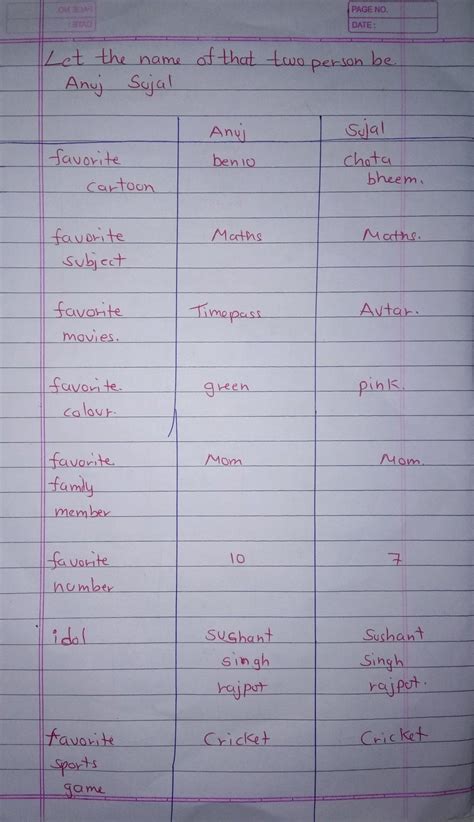 PAGE NO.
DATE:
Let the name of that two person be.
Anuj Sujal
Anuj Sujal
favorite ben10 chota
cartoon bheem.
favorite Maths Maths.
subject
favorite Timepass Avtar.
movies.
favorite. green pink.
colour.
favorite Mom Mom.
family
member
favorite 10 7
number
idol Sushant Sushant
singh Singh
rajpot rajpot.
favorite Cricket Cricket
sports
game